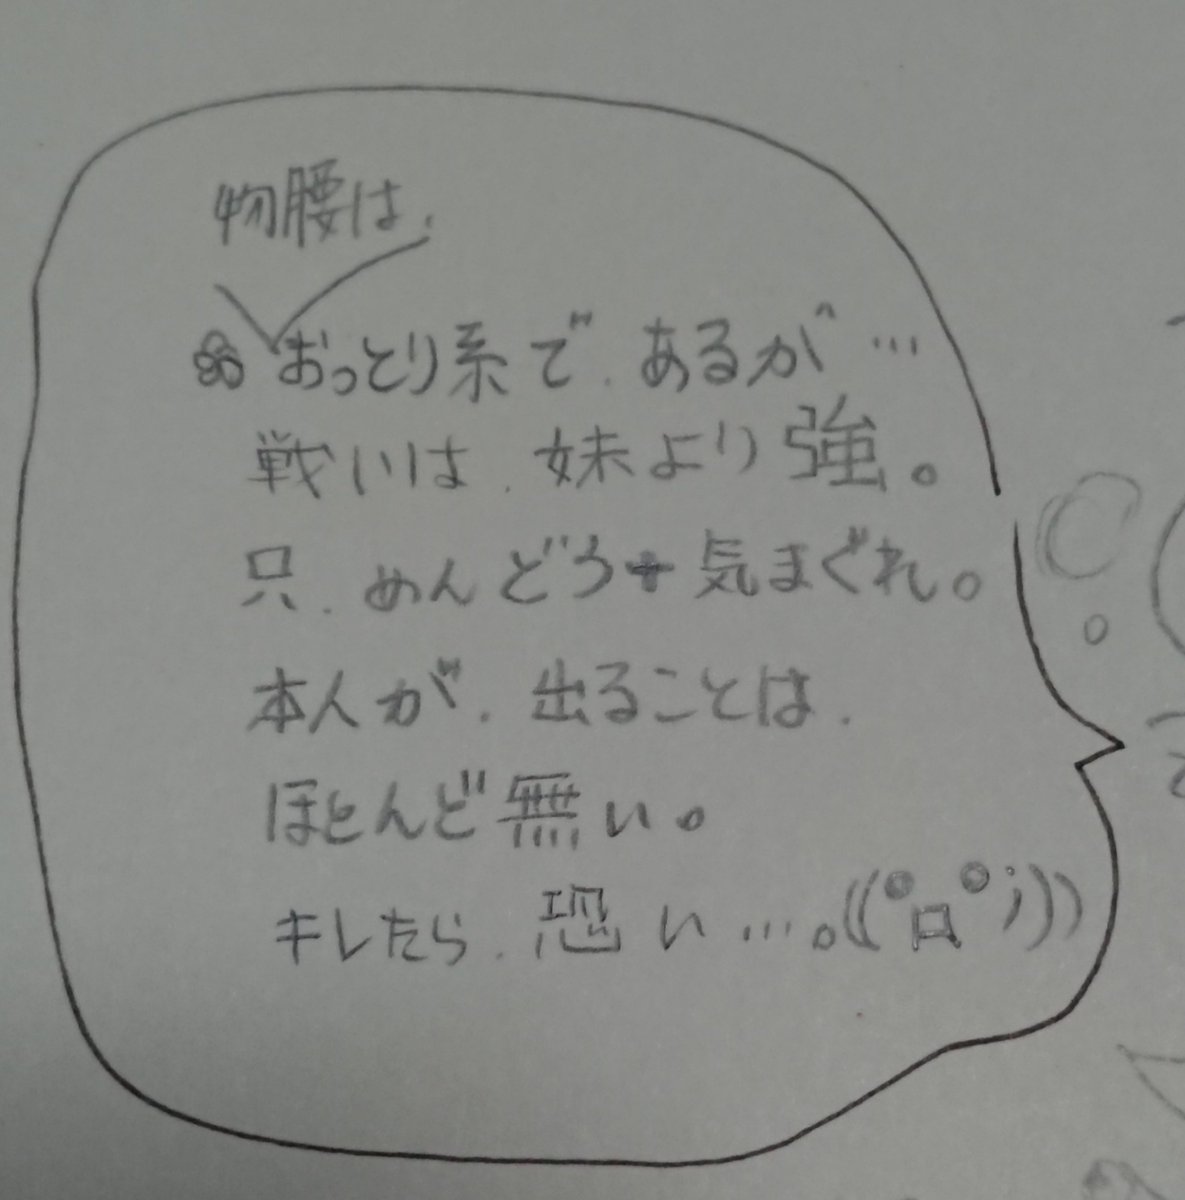 物腰は、
おっとり系で、あるが…
戦いは、妹より強。
只、めんどう+気まぐれ。
本人が、出ることは、
ほとんど無い。
キレたら、恐い…。((°ロ°;))